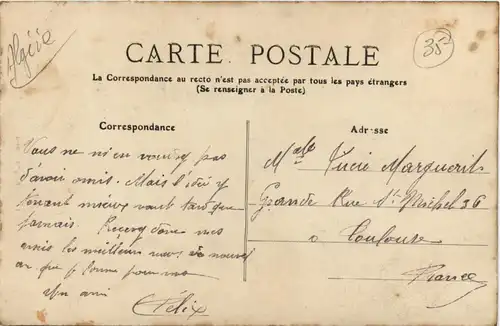 Algérie
35
CARTE POSTALE
La Correspondance au recto n'est pas acceptée par tous les pays étrangers
(Se renseigner à la Poste)
Correspondance
Vous ne m'en voudrez pas
d'avoir omis. Mais l'idée y
tenant mieux vaut tard que
jamais. Recevez donc mes
amis les meilleurs vœux de nouvel
an que je forme pour vous
Un ami
Félix
Adresse
Lucie Marguerit
Grande Rue St Michel 36
à Toulouse
France